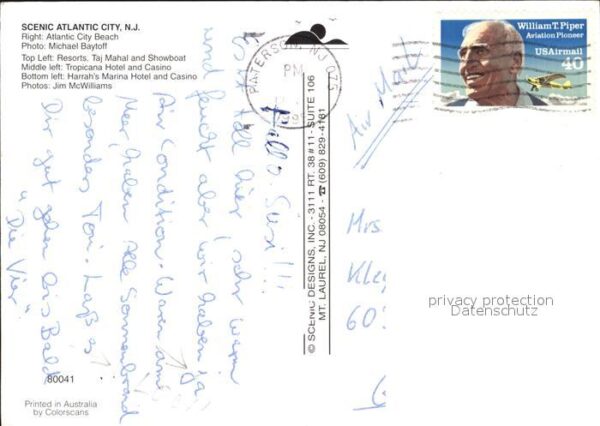 SCENIC ATLANTIC CITY, N.J.
Right: Atlantic City Beach
Photo: Michael Baytoff
Top Left: Resorts, Taj Mahal and Showboat
Middle left: Tropicana Hotel and Casino
Bottom left: Harrah's Marina Hotel and Casino
Photos: Jim McWilliams
Hallo Susi!!!
toll hier, sehr warm
und feucht aber wir haben ja
Air Condition. Waren am
Meer, haben alle Sonnenbrand
besonders Toni. Laß es
Dir gut gehen bis Bald
"Die Vier"
80041
Printed in Australia
by Colorscans
© SCENIC DESIGNS, INC. - 3111 RT. 38 #11 - SUITE 106
MT. LAUREL, NJ 08054 - ☎ (609) 829-4161
PATERSON, NJ 075
PM
William T. Piper
Aviation Pioneer
USAirmail
40
Air Mail
Mrs
60
privacy protection
Datenschutz